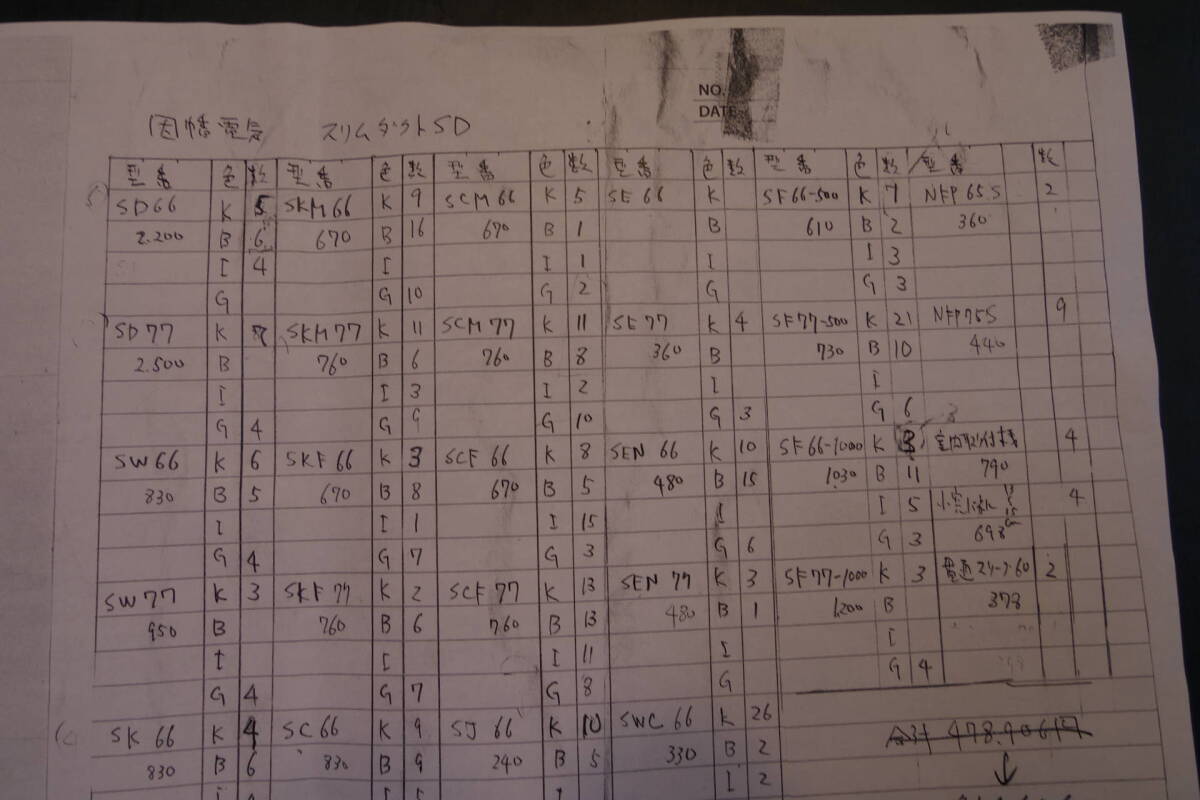 NO.
DATE
因幡電気 スリムダクトSD
型番 色 数 型番 色 数 型番 色 数 型番 色 数 型番 色 数 型番 数
SD66 K 5 SKM66 K 9 SCM66 K 5 SE66 K SF66-500 K 7 NFP65S 2
2.200 B 6 670 B 16 670 B 1 B 610 B 2 360
I 4 I I 1 I I 3
G G 10 G 2 G G 3
SD77 K SKM77 K 11 SCM77 K 11 SE77 K 4 SF77-500 K 21 NFP75S 9
2.500 B 760 B 6 760 B 8 360 B 730 B 10 440
I I 3 I 2 I I
G 4 G 9 G 10 G 3 G 6
SW66 K 6 SKF66 K 3 SCF66 K 8 SEN66 K 10 SF66-1000 K 3 4
830 B 5 670 B 8 670 B 5 480 B 15 1030 B 11 790
I I 1 I 15 I I 5 4
G 4 G 7 G 3 G 6 G 3 693
SW77 K 3 SKF77 K 2 SCF77 K 13 SEN77 K 3 SF77-1000 K 3 貫通スリーブ60 2
950 B 760 B 6 760 B 13 480 B 1 1200 B 378
I I I 11 I I
G 4 G 7 G 8 G G 4
SK66 K 4 SC66 K 9 SJ66 K 10 SWC66 K 26 合計 478.906円
830 B 6 830 B 9 240 B 5 330 B 2 ↓
I I I I 2